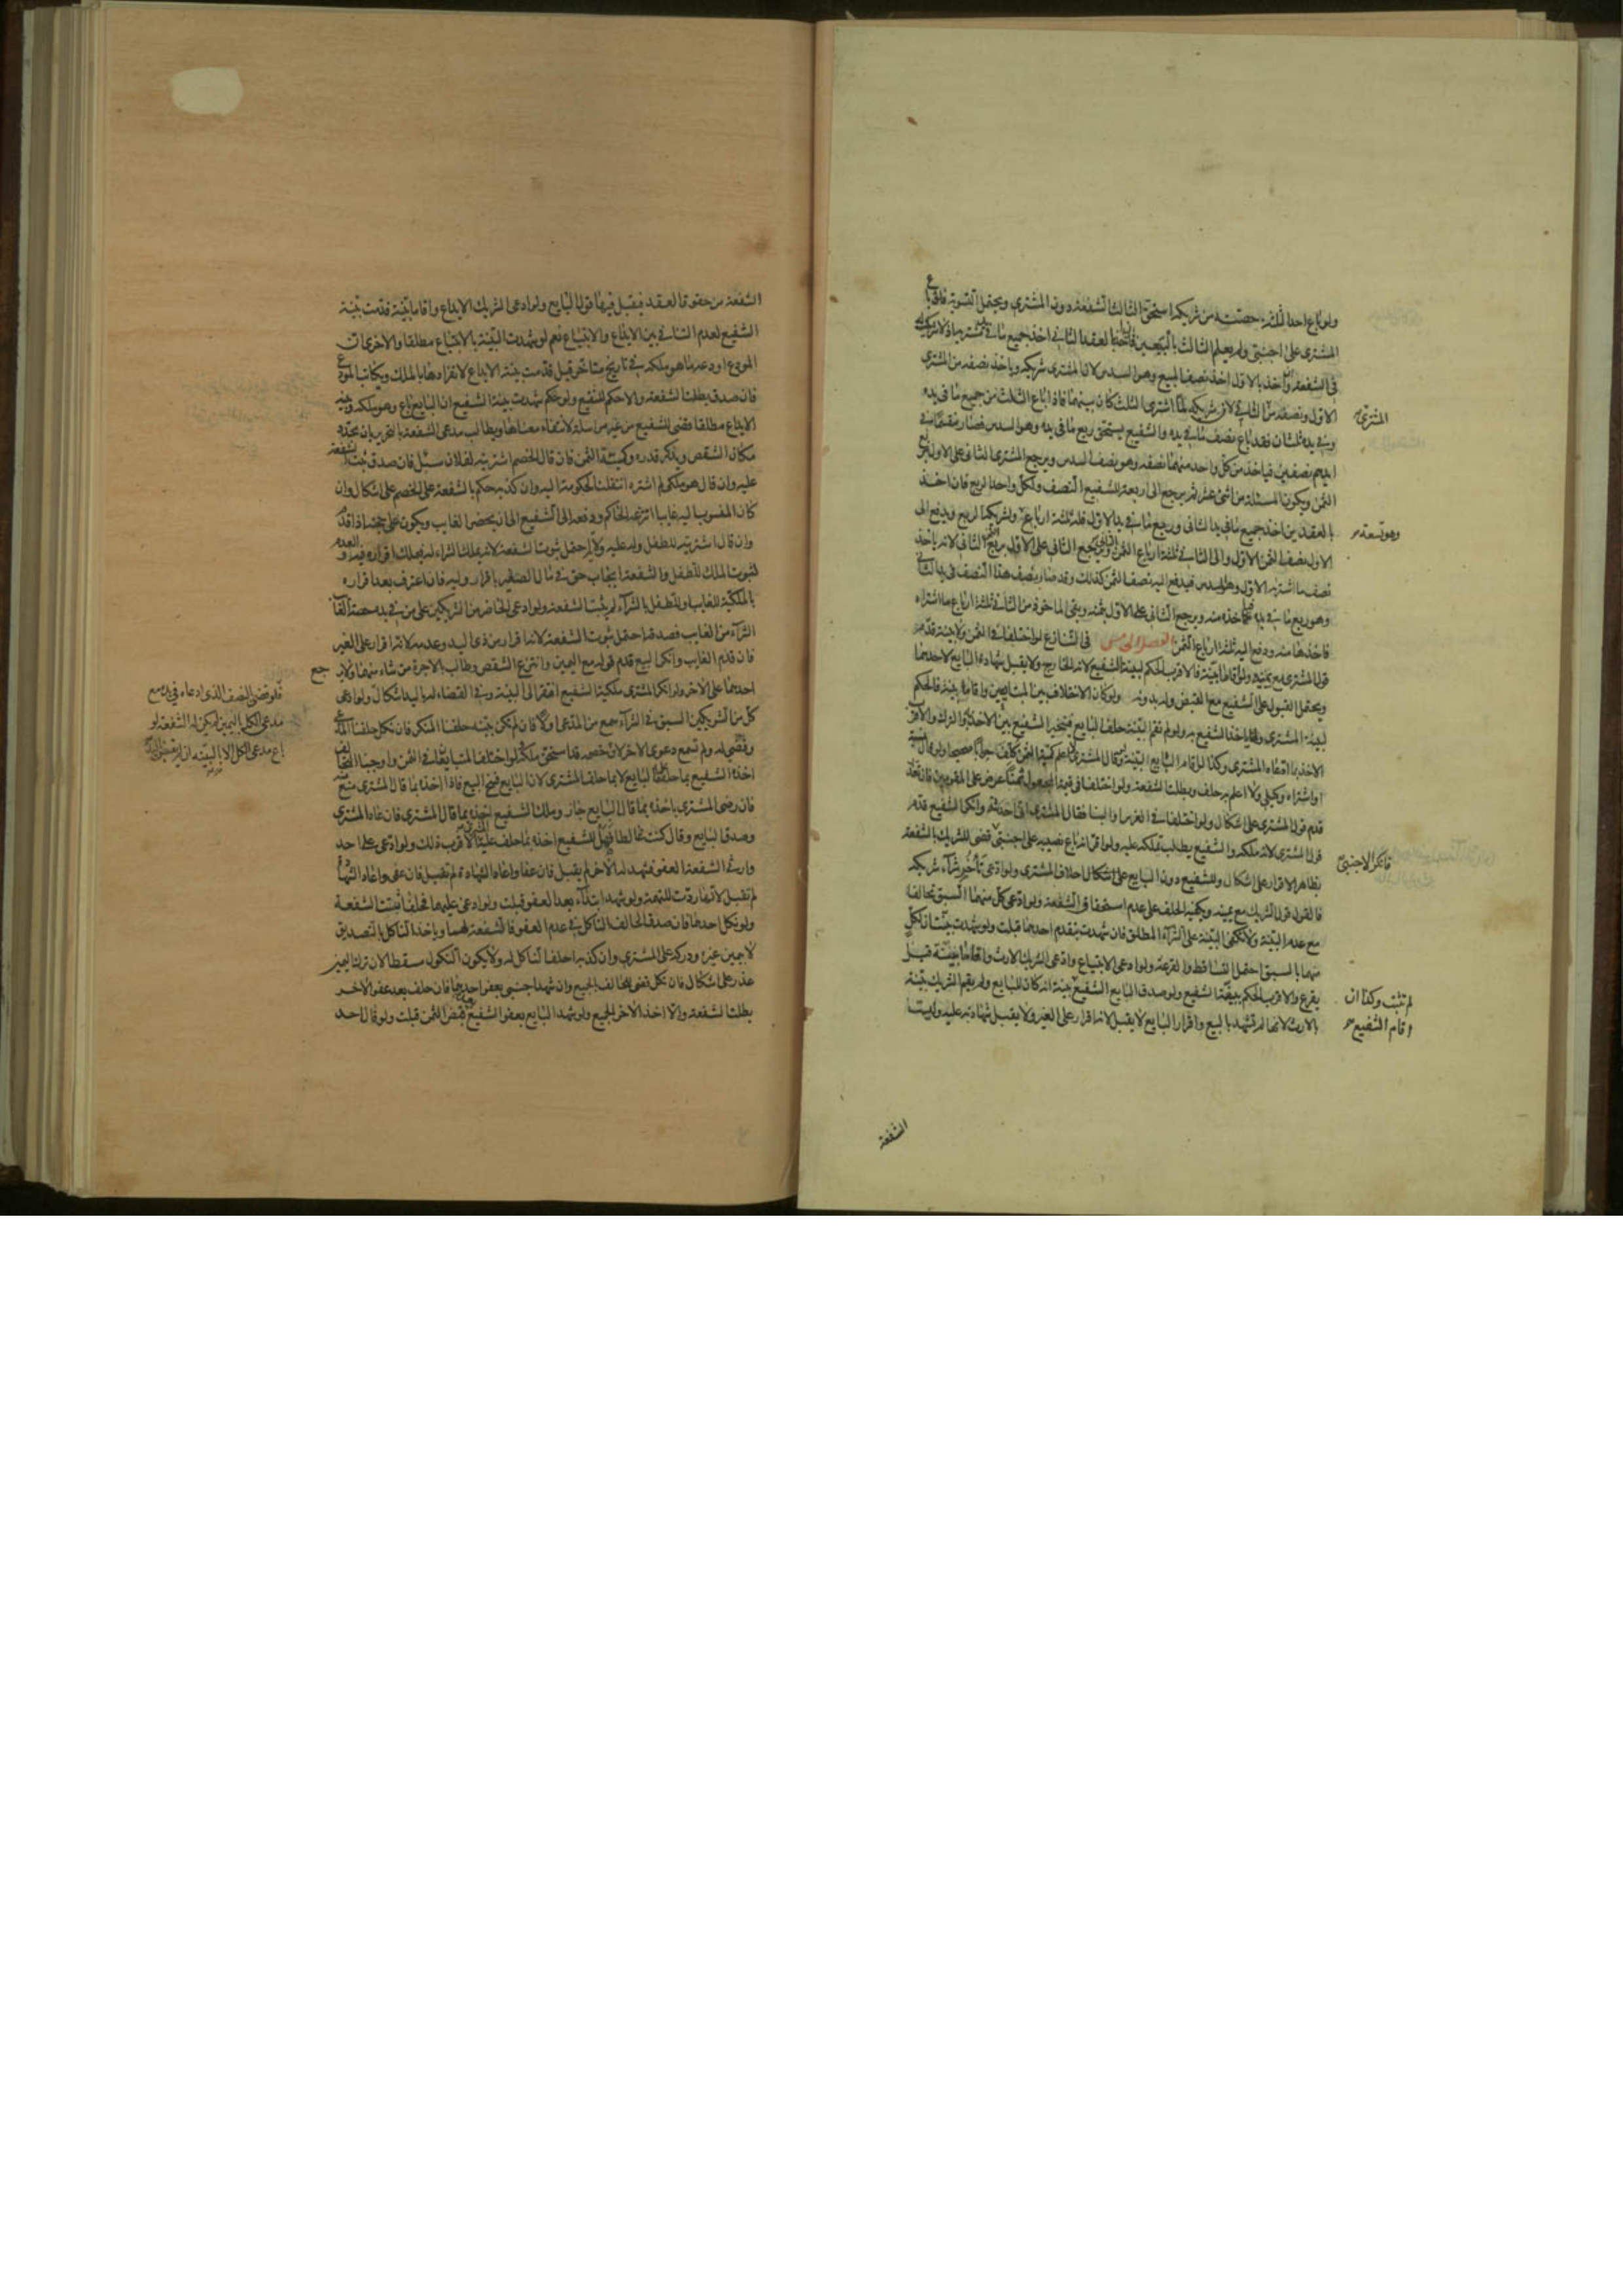 ولو باع احد الثلثة حصته من شريكه استحق الثالث الشفعة دون المشتري ويحتمل التسوية فلو باع
المشتري على اجنبي ولم يعلم الثالث بالبيعين فان اخذ بالعقد الثاني اخذ جميع ما في يد مشتريه اذ لا شريك له
في الشفعة وان اخذ بالاول اخذ نصف المبيع وهو السدس لان المشتري شريكه وياخذ نصفه من المشتري
الاول ونصفه من الثاني لان شريكه لما اشترى الثلث كان بينهما فاذا باع الثلث من جميع ما في يده
وفي يده ثلثان فقد باع نصف ما في يده والشفيع يستحق ربع ما في يده وهو السدس فصار منقسما في
ايديهم نصفين فياخذ من كل واحد منهما نصفه وهو نصف السدس ويرجع المشتري الثاني على الاول بربع
الثمن ويكون المسئلة من اثني عشر ثم يرجع الى اربعة للشفيع النصف ولكل واحد الربع فان اخذ
بالعقدين اخذ جميع ما في يد الثاني وربع ما في يد الاول فله ثلثة ارباع ولشريكه الربع ويدفع الى
الاول نصف الثمن الاول والى الثاني ثلثة ارباع الثمن الثاني ويرجع الثاني على الاول بربع الثمن الثاني لانه ياخذ
نصف ما اشتريه الاول وهو السدس فيدفع اليه نصف الثمن كذلك وقد صار نصف هذا النصف في يد الثاني
وهو ربع ما في يده فياخذه منه ويرجع الثاني على الاول بثمنه وبقي الماخوذ من الثاني ثلثة ارباع ما اشتراه
فاخذها منه ودفع اليه ثلثة ارباع الثمن الفصل الخامس في التنازع لو اختلفا في الثمن ولا بينة قدم
قول المشتري مع يمينه ولو اقاما بينة فالاقرب الحكم لبينة الشفيع لانه الخارج ولا يقبل شهادة البايع لاحدهما
ويحتمل القبول على الشفيع مع القبض وله بدونه ولو كان الاختلاف بين المتبايعين واقاما بينة فالحكم
لبينة المشتري وياخذ الشفيع به ولو لم تقم البينة حلف البايع فيتخير الشفيع بين الاخذ به والترك والاقرب
الاخذ بما ادعاه المشتري وكذا لو اقام البايع البينة ولو قال المشتري لا اعلم كمية الثمن كلف جوابا صحيحا ولو قال نسيته
او اشتراه وكيلي ولا اعلم به حلف وبطلت الشفعة ولو اختلفا في قيمة المجعول ثمنا عرض على المقومين فان تعذر
قدم قول المشتري على اشكال ولو اختلفا في الغرس او البناء فقال المشتري انا احدثته وانكر الشفيع قدم
قول المشتري لانه ملكه والشفيع يطلب تملكه عليه ولو اقر انه باع نصيبه على اجنبي قضي للشريك بالشفعة
بظاهر الاقرار على اشكال وللشفيع دون البايع على اشكال احلاف المشتري ولو ادعى تأخر شراء شريكه
فالقول قول الشريك مع يمينه ويكفيه الحلف على عدم استحقاق الشفعة ولو ادعى كل منهما السبق تحالفا
مع عدم البينة ولا تكفي البينة على الشراء المطلق فان شهدت بتقدم احدهما قبلت ولو شهدت بينتان لكل
منهما بالسبق احتمل التساقط والقرعة ولو ادعى الابتياع وادعى الشريك الارث واقاما بينة قيل
يقرع والاقرب الحكم ببينة الشفيع ولو صدق البايع الشفيع بينة انه كان للبايع ولم يقم الشريك بينة
بالارث لانها لم تشهد بالبيع واقرار البايع لا يقبل لانه اقرار على الغير ولا يقبل شهادته عليه وليست
المشتري
وهو تسعة
فانكر الاجنبي
لم تثبت وكذا ان
اقام الشفيع
الشفعة
الشفعة من حقوق العقد فيقبل فيها قول البايع ولو ادعى الشريك الايداع واقاما بينة قدمت بينة
الشفيع لعدم التنافي بين الايداع والابتياع نعم لو شهدت البينة بالابتياع مطلقا والاخرى ان
المودع اودعه ما هو ملكه في تاريخ متاخر قيل قدمت بينة الايداع لانفرادها بالملك ويكاتب المودع
فان صدق بطلت الشفعة والا حكم للشفيع ولو حكم شهدت بينة الشفيع ان البايع باع وهو ملكه وبينة
الايداع مطلقا قضي للشفيع من غير مراسلة لانتفاء معناها ويطالب مدعي الشفعة بالتحرير بان يحدد
مكان الشقص ويذكر قدره وكمية الثمن فان قال الخصم اشتريته لفلان سئل فان صدق ثبت الشفعة
عليه وان قال هو ملكي لم اشتره انتقلت الحكومة اليه وان كذبه حكم بالشفعة على الخصم على اشكال وان
كان المنسوب اليه غايبا انتزعه الحاكم ودفعه الى الشفيع الى ان يحضر الغايب ويكون على حجته اذا قدم
وان قال اشتريته للطفل وله عليه ولاية احتمل ثبوت الشفعة لانه يملك الشراء له فيملك اقراره فيه والعدم
لثبوت الملك للطفل والشفعة ايجاب حق في مال الصغير باقرار وليه فان اعترف بعد اقراره
بالملكية للغايب او للطفل بالشراء لم يثبت الشفعة ولو ادعى الحاضر من الشريكين على من في يده حصة الغايب
الشراء من الغايب فصدقه احتمل ثبوت الشفعة لانه اقرار من ذي اليد وعدمه لانه اقرار على الغير
فان قدم الغايب وانكر البيع قدم قوله مع اليمين وانتزع الشقص وطالب بالاجرة من شاء منهما ولا يرجع
احدهما على الاخر ولو انكر المشتري ملكية الشفيع افتقر الى البينة وفي القضاء له باليد اشكال ولو ادعى
كل من الشريكين السبق في الشراء سمع من المدعي اولا فان لم يكن بينة حلفنا المنكر فان نكل حلفنا المدعي
وقضي له ولم تسمع دعوى الاخر لان خصمه قد استحق ملكه ولو اختلف المتبايعان في الثمن واوجبنا التحالف
اخذه الشفيع بما حلف عليه البايع لا بما حلف المشتري لان البايع فسخ البيع فاذا اخذه بما قال المشتري منع منه
فان رضي المشتري باخذه بما قال البايع جاز وملك الشفيع اخذه بما قال المشتري فان عاد المشتري
وصدق البايع وقال كنت غالطا فهل للشفيع اخذه بما حلف عليه الاقرب ذلك ولو ادعى على احد
وارثي الشفعة العفو فشهد له الاخر لم يقبل فان عفا واعاد الشهادة لم تقبل فان عفى واعاد الشهادة
لم تقبل لانها ردت للتهمة ولو شهد ابتداء بعد العفو قبلت ولو ادعى عليهما فحلفا ثبتت الشفعة
ولو نكل احدهما فان صدق الحالف الناكل في عدم العفو فالشفعة لهما وياخذ الناكل بالتصديق
لا بيمين غيره ودركه على المشتري وان كذبه احلف الناكل له ولا يكون النكول مسقطا لان ترك اليمين
عذر على اشكال فان نكل قضي للحالف بالجميع وان شهد اجنبي بعفو احدهما فان حلف بعد عفو الاخر
بطلت الشفعة والا اخذ الاخر الجميع ولو شهد البايع بعفو الشفيع بعد قبض الثمن قبلت ولو قال احد
فلو قضي بالنصف الذي ادعاه في يده مع
مدعي الكل باليمين لم يكن له الشفعة لو